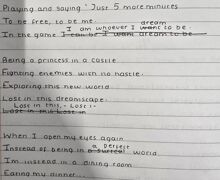 Playing and saying ' Just 5 more minutes
To be free, to be me
I am whoever I want to be dream
In the game I can be I want dream to be

Being a princess in a castle
Fighting enemies with no hastle.
Exploring this new world
Lost in this dreamscape.
Lost in this, - Lost :-
Lost in this Lost in

When I open my eyes again
a perfect
Instead of being in a surreal world
I'm instead in a dining room
Eating my dinner...